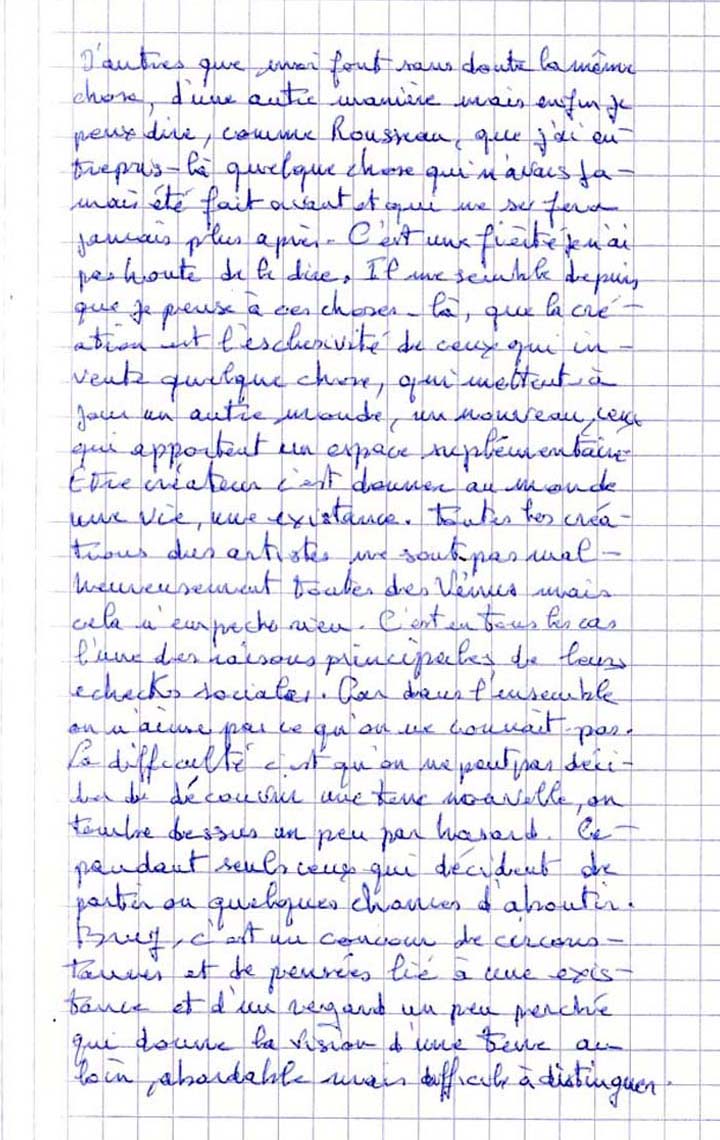 D'autres que moi font sans doute la même
chose, d'une autre manière mais enfin je
peux dire, comme Rousseau, que j'ai en-
trepris-là quelque chose qui n'avais ja-
mais été fait avant et qui ne se fera
jamais plus après. C'est une fierté je n'ai
pas honte de le dire. Il me semble depuis
que je pense à ces choses-là, que la cré-
ation est l'esclusivité de ceux qui in-
vente quelque chose, qui mettent à
jour un autre monde, un nouveau, ceux
qui apportent un espace supplémentaire
Être créateur c'est donner au monde
une vie, une existance. Toutes les créa-
tions des artistes ne sont pas mal-
heureusement toutes des Vénus mais
cela n'empeche rien. C'est en tous les cas
l'une des raisons principales de leurs
echecks sociales. Car dans l'ensemble
on n'aime pas ce qu'on ne connait pas.
La difficulté c'est qu'on ne peut pas déci-
der de découvrir une terre nouvelle, on
tombe dessus un peu par hasard. Ce-
pendant seuls ceux qui décident de
partir on quelques chances d'aboutir.
Bref, c'est un concour de circons-
tances et de pensées lié à une exis-
tance et d'un regard un peu perché
qui donne la vision d'une terre au
loin, abordable mais difficile à distinguer.